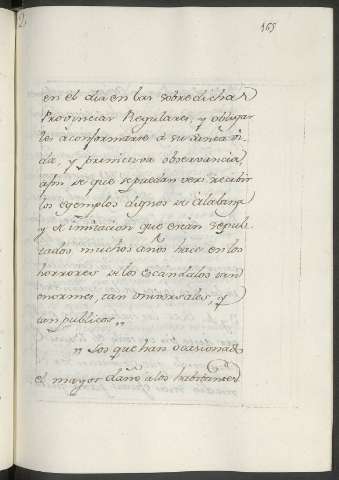 165
en el dia en las sobredichas
Provincias Regulares, y obligar
les à conformarse à su
da, y primitiva observancia,
afin de que se puedan ver, recibir
los egemplos dignos de alabanza
y de imitacion que están sepul
tados muchos años hace en los
horrores de los escandalos tan
enormes, tan universales, y
tan publicos,,
,, Los que han ocasionado
el mayor daño a los habitantes